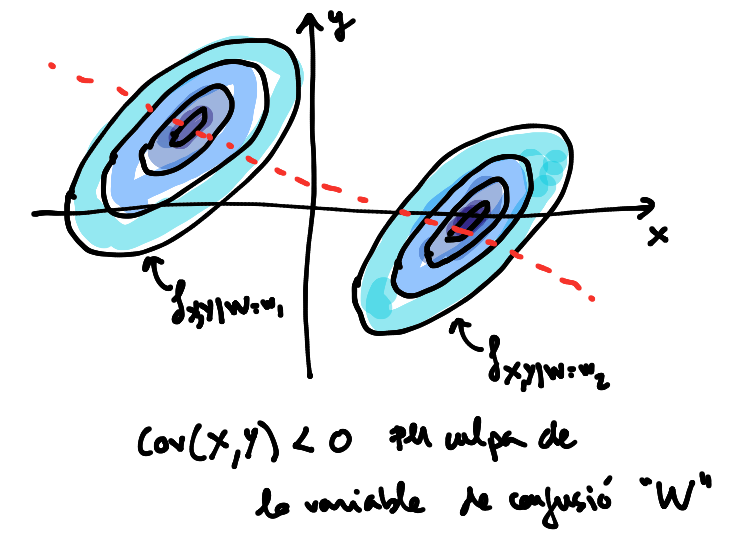 y
x
f_{X,Y|W=w_1}
f_{X,Y|W=w_2}
Cov(X,Y) < 0 per culpa de
la variable de confusió "W"